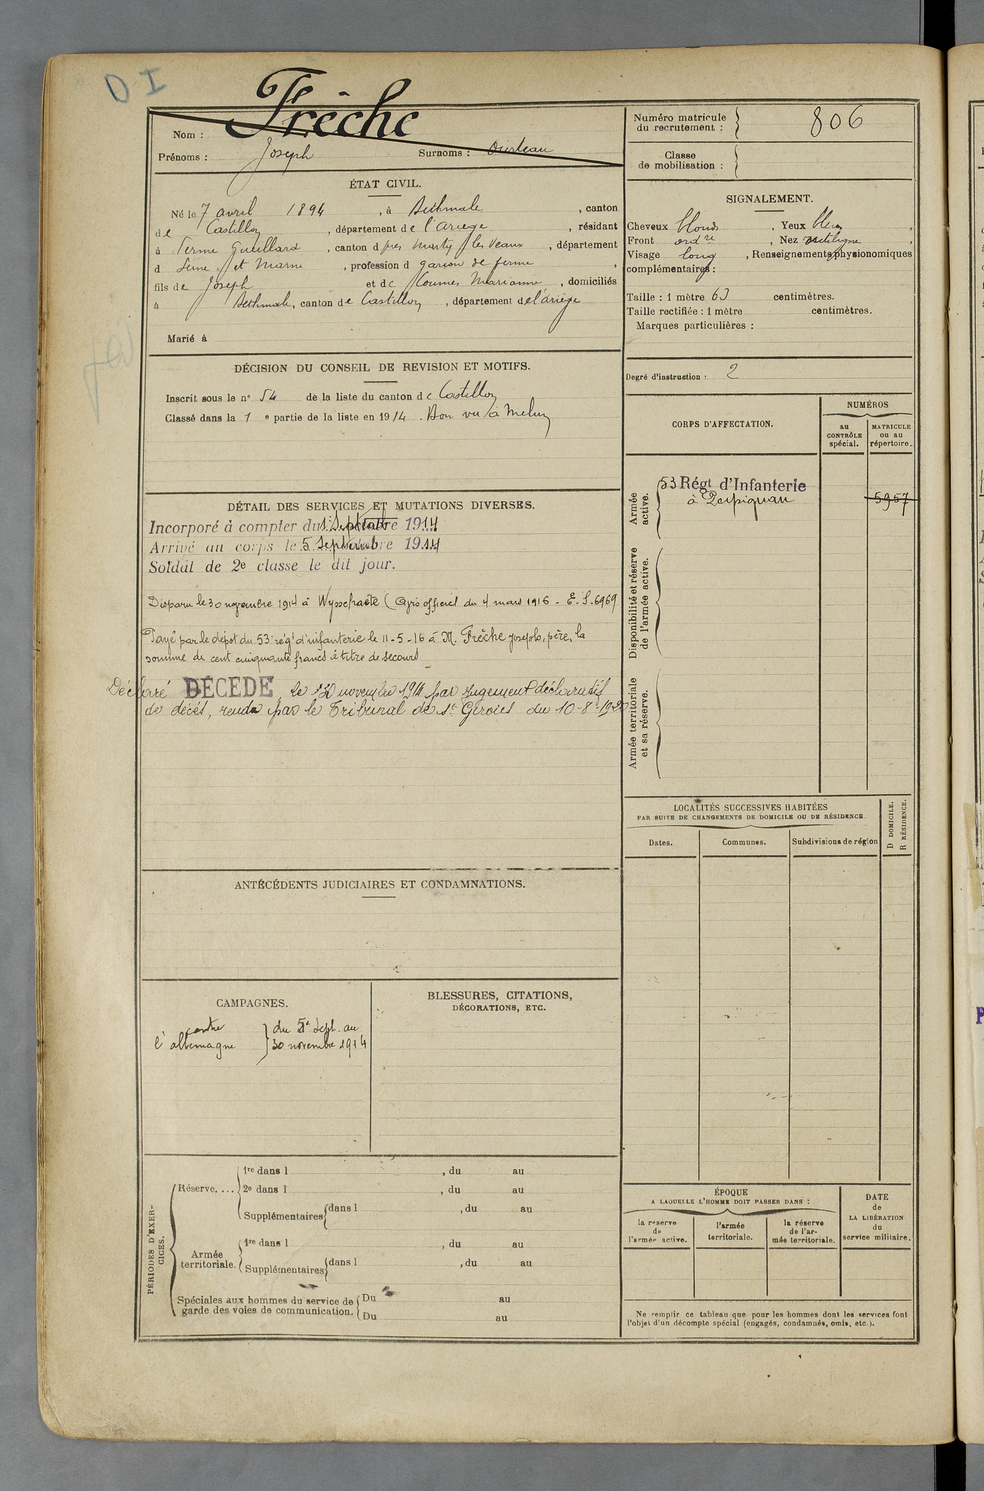 D I
Frêche
Nom :
Prénoms : Joseph Surnoms : Ousteau
Numéro matricule
du recrutement : 806
Classe
de mobilisation :
ÉTAT CIVIL.
Né le 7 avril 1894, à Bethmale, canton
de Castillon, département de l'ariège, résidant
à ferme Guillard, canton d près Marly les Veaux, département
d Seine et Marne, profession d garçon de ferme,
fils de Joseph et de Coumes Marianne, domiciliés
à Bethmale, canton de Castillon, département de l'ariège
Marié à
SIGNALEMENT.
Cheveux blonds, Yeux bleus,
Front ord re, Nez rectiligne,
Visage long, Renseignements physionomiques
complémentaires :
Taille : 1 mètre 63 centimètres.
Taille rectifiée : 1 mètre centimètres.
Marques particulières :
Degré d'instruction : 2
DÉCISION DU CONSEIL DE REVISION ET MOTIFS.
Inscrit sous le n° 54 de la liste du canton de Castillon
Classé dans la 1 e partie de la liste en 1914. Bon vu à Melun
CORPS D'AFFECTATION.
NUMÉROS
au
CONTRÔLE
spécial.
MATRICULE
ou au
répertoire.
Armée
active.
53 Régt d'Infanterie
à Perpignan
5957
Disponibilité et réserve
de l'armée active.
Armée territoriale
et sa réserve.
DÉTAIL DES SERVICES ET MUTATIONS DIVERSES.
Incorporé à compter du 1 Septembre 1914
Arrivé au corps le 5 Septembre 1914
Soldat de 2e classe le dit jour.
Disparu le 30 novembre 1914 à Wysschaete (Avis officiel du 4 mars 1916 - E. S. 6969
Payé par le dépot du 53e régt d'infanterie le 11-5-16 à M. Frêche Joseph, père, la
somme de cent cinquante francs à titre de secours
Déclaré DÉCÉDÉ, le 30 novembre 1914 par jugement déclaratif
de décès, rendu par le Tribunal de St Girons du 10-8-1920
LOCALITÉS SUCCESSIVES HABITÉES
PAR SUITE DE CHANGEMENTS DE DOMICILE OU DE RÉSIDENCE.
D DOMICILE.
R RÉSIDENCE.
Dates. Communes. Subdivisions de région
ANTÉCÉDENTS JUDICIAIRES ET CONDAMNATIONS.
CAMPAGNES.
contre
l'allemagne
du 5 Sept. au
30 novembre 1914
BLESSURES, CITATIONS,
DÉCORATIONS, ETC.
PÉRIODES D'EXER-
CICES.
Réserve, ...
1re dans l , du au
2e dans l , du au
Supplémentaires dans l , du au
Armée
territoriale.
1re dans l , du au
Supplémentaires dans l , du au
Spéciales aux hommes du service de
garde des voies de communication.
Du au
Du au
ÉPOQUE
A LAQUELLE L'HOMME DOIT PASSER DANS :
la réserve
de
l'armée active.
l'armée
territoriale.
la réserve
de l'ar-
mée territoriale.
DATE
de
LA LIBÉRATION
du
service militaire.
Ne remplir ce tableau que pour les hommes dont les services font
l'objet d'un décompte spécial (engagés, condamnés, omis, etc.).